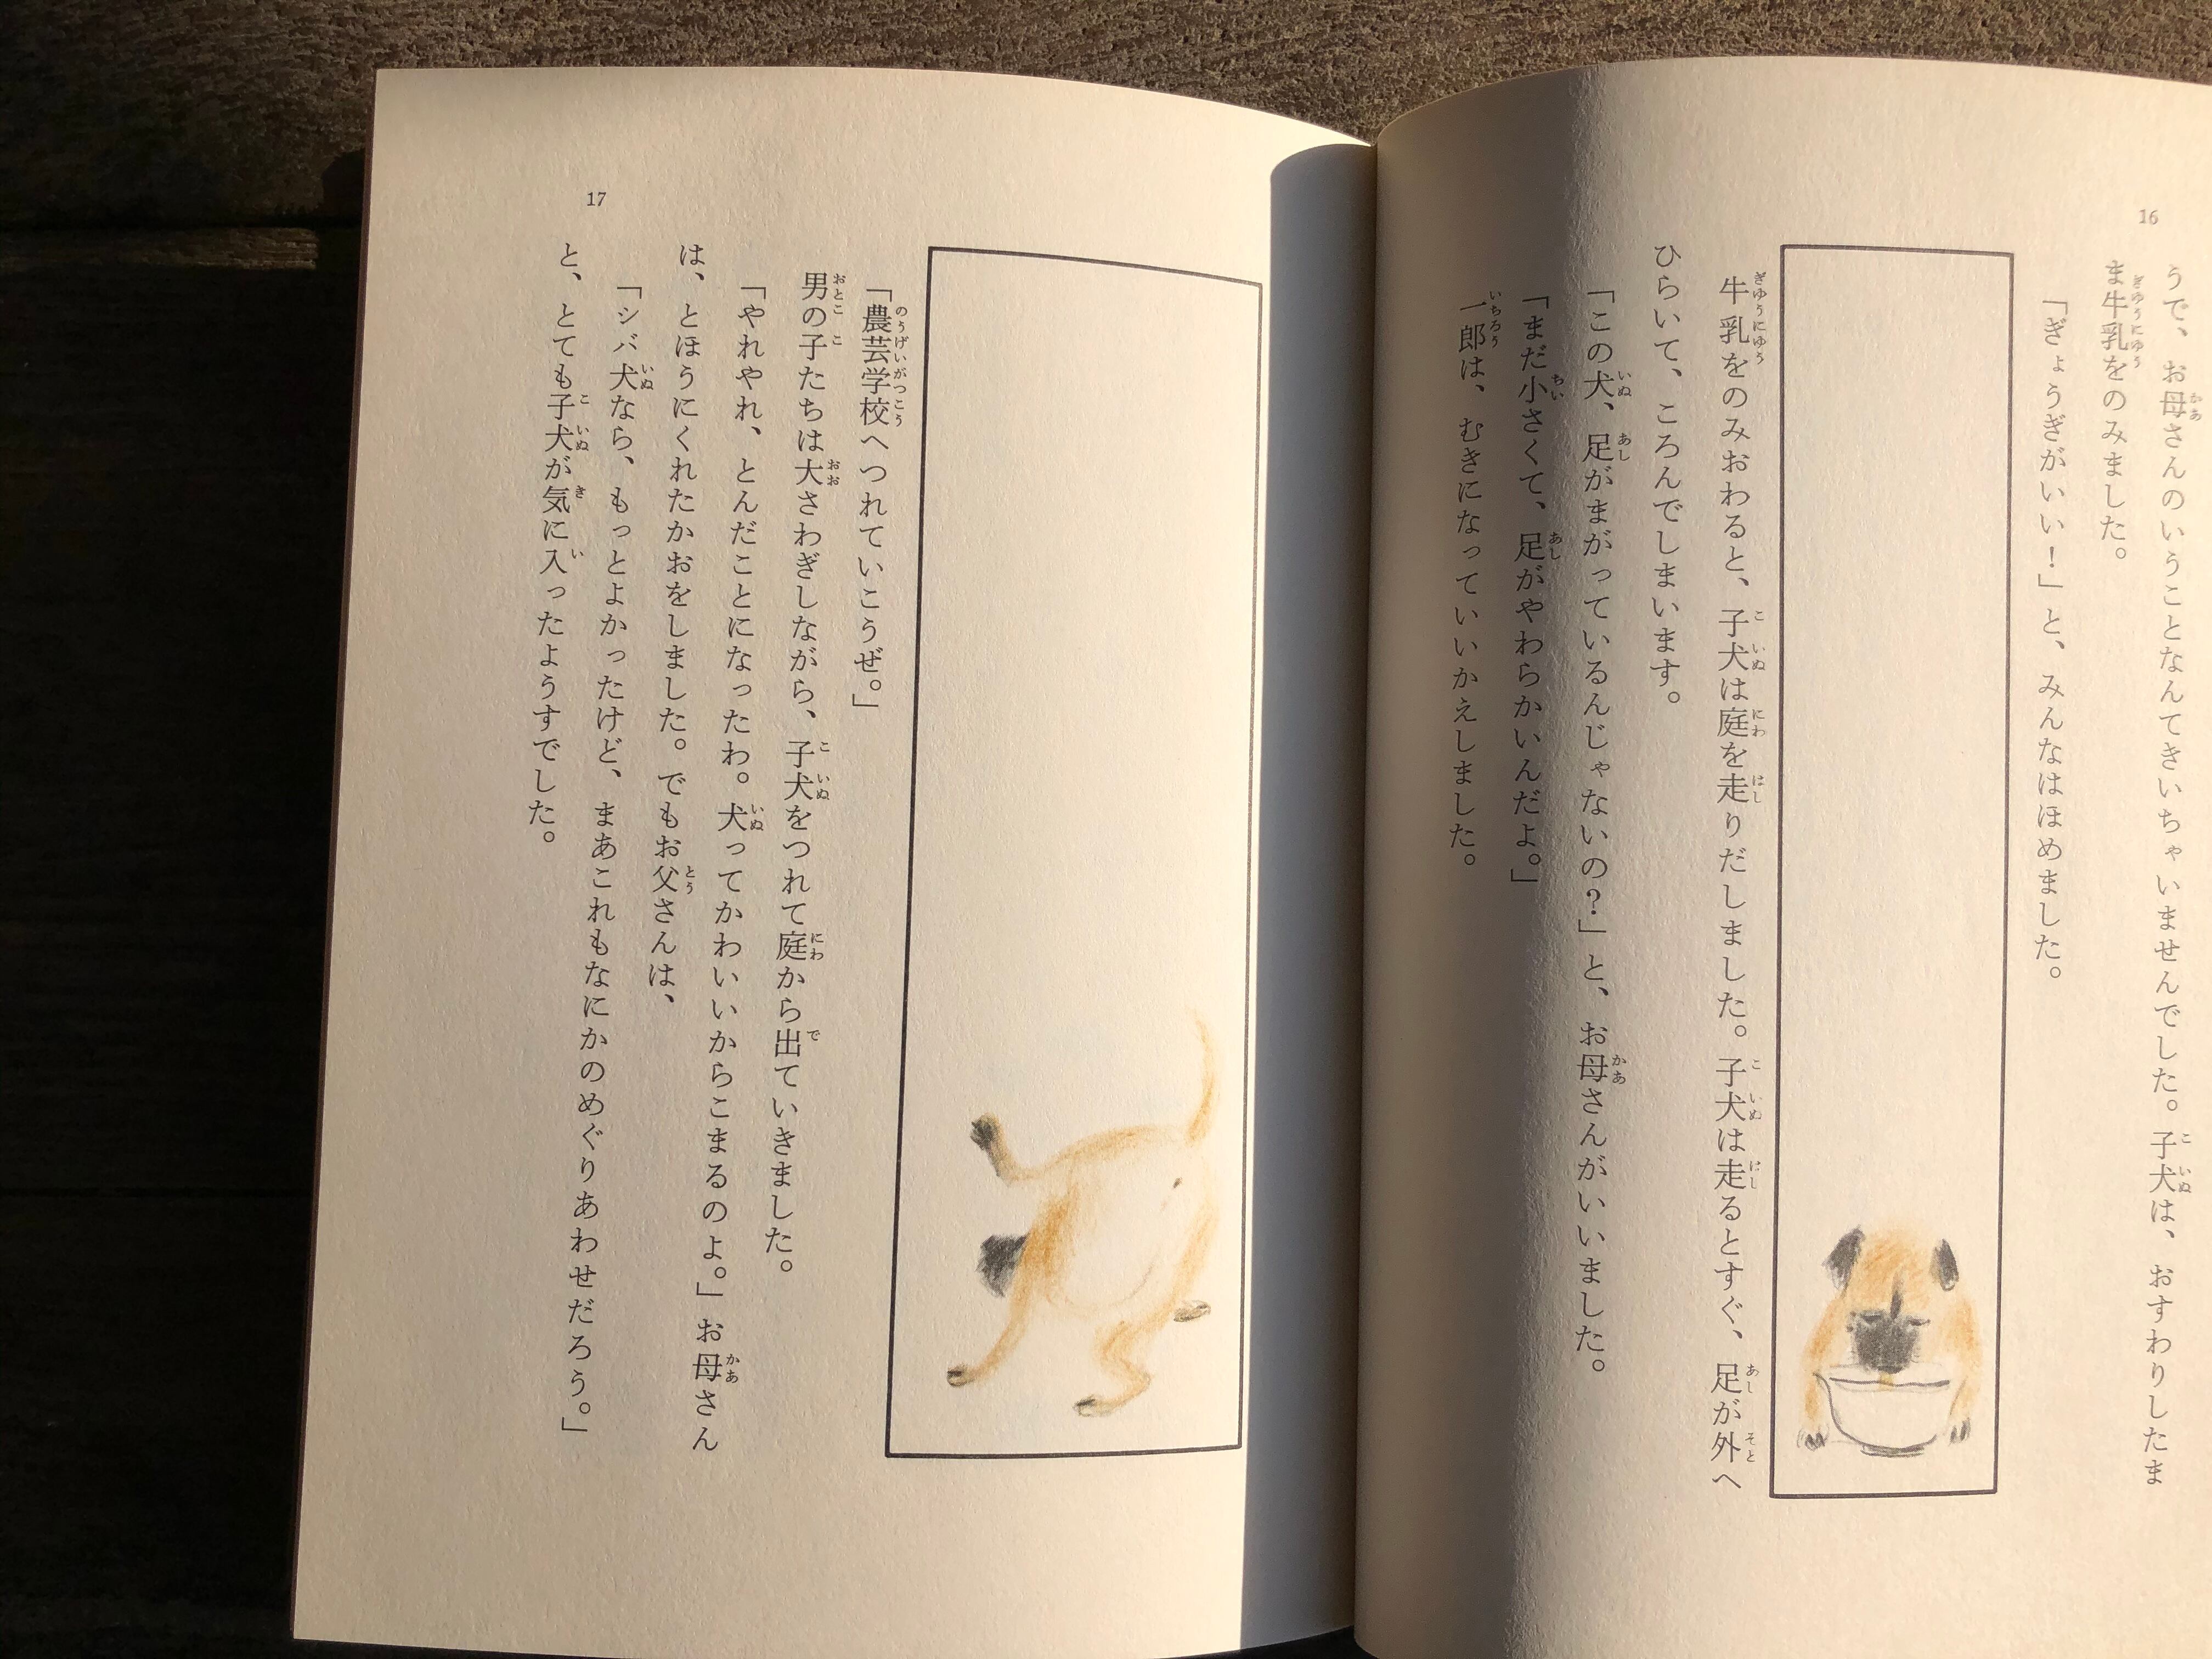 16
うで、お母さんのいうことなんてきいちゃいませんでした。子犬は、おすわりしたま
ま牛乳をのみました。
「ぎょうぎがいい！」と、みんなはほめました。
牛乳をのみおわると、子犬は庭を走りだしました。子犬は走るとすぐ、足が外へ
ひらいて、ころんでしまいます。
「この犬、足がまがっているんじゃないの？」と、お母さんがいいました。
「まだ小さくて、足がやわらかいんだよ。」
一郎は、むきになっていいかえしました。
「農芸学校へつれていこうぜ。」
男の子たちは大さわぎしながら、子犬をつれて庭から出ていきました。
「やれやれ、とんだことになったわ。犬ってかわいいからこまるのよ。」お母さん
は、とほうにくれたかおをしました。でもお父さんは、
「シバ犬なら、もっとよかったけど、まあこれもなにかのめぐりあわせだろう。」
と、とても子犬が気に入ったようすでした。
17